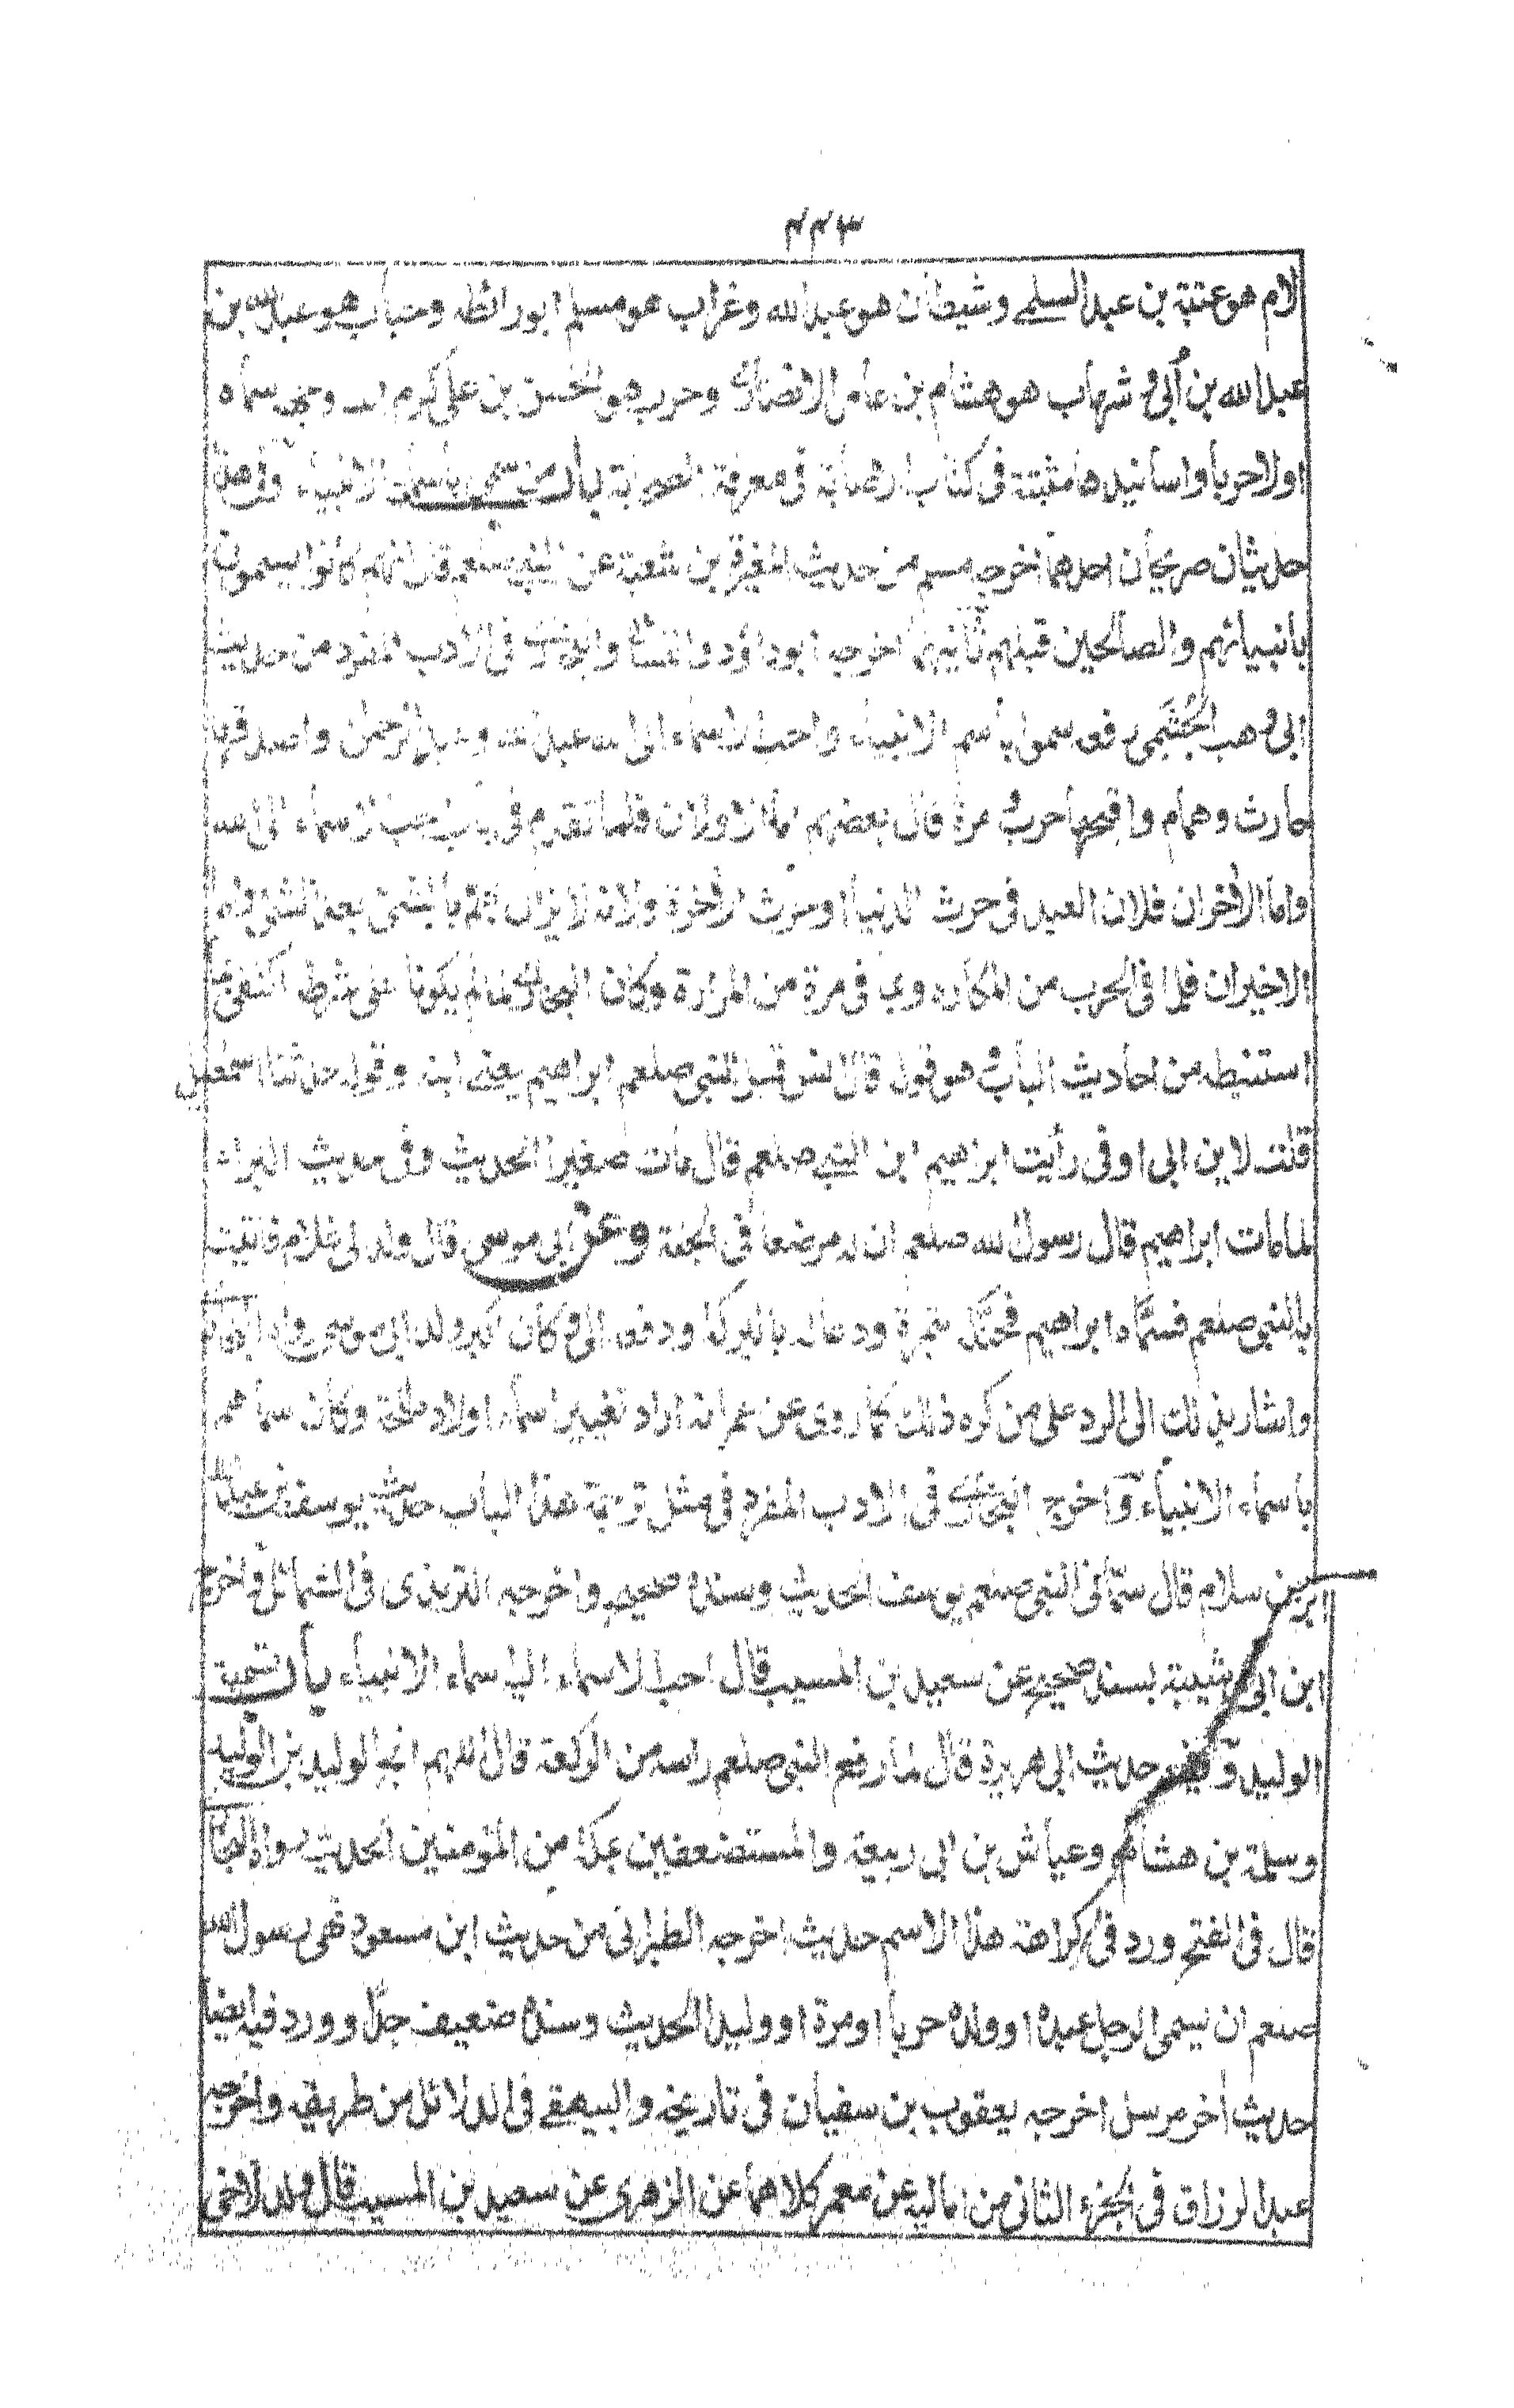 ۲۲۳
لام هو عتبة بن عبد السلمي وشيطان هو عبد الله وغراب هو مسلم ابو رائطه وحباب هو عبد الله بن
عبد الله بن أبي وشهاب هو هشام بن عامر الانصاري وحرب هو الحسن بن علي كرم الله وجهه سماه
اولا حربا واسانيدها مثبتة في كتاب الاصابة في معرفة الصحابة باب من سمى باسماء الانبياء وفي هذا
حديثان صريحان احدهما اخرجه مسلم من حديث المغيرة بن شعبة عن النبي صلعم قال انهم كانوا يسمون
بانبيائهم والصالحين قبلهم ثانيهما اخرجه ابو داؤد والنسائي والبخاري في الادب المفرد من حديث
ابي وهب الجُشَمي رفعه سموا باسماء الانبياء واحب الاسماء الى الله عبد الله وعبد الرحمن واصدقها
حارث وهمام واقبحها حرب ومرة قال بعضهم اما الاولان فلما تقدم في باب احب الاسماء الى الله
واما الاخران فلان العبد في حرث الدنيا او حرث الاخرة ولانه لا يزال يهتم بالشئ بعد الشئ واما
الاخيران فلما في الحرب من المكاره وبما في مرة من المرارة وكان البخاري لما لم يكونا على شرطه اكتفى بما
استنبطه من احاديث الباب هو قول قال انس قبل النبي صلعم ابراهيم يعني ابنه وقوله حدثنا اسمعيل
قلت لابن ابي اوفى رأيت ابراهيم ابن النبي صلعم قال مات صغيرا الحديث وفي حديث البراء
لما مات ابراهيم قال رسول الله صلعم ان له مرضعا في الجنة وعن ابي موسى قال ولد لي غلام فاتيت
به النبي صلعم فسماه ابراهيم فحنَّكه بتمرة ودعا له بالبركة ودفعه الي وكان اكبر ولد ابي موسى رواه البخاري
واشار بذلك الى الرد على من كره ذلك كما روي عن عمر انه اراد تغيير اسماء اولاد طلحة وكان سماهم
باسماء الانبياء واخرج البخاري في الادب المفرد في مثل ترجمة هذا الباب حديث يوسف بن عبد الله
بن سلام قال سمّاني النبي صلعم يوسف الحديث وسنده صحيح واخرجه الترمذي في الشمائل واخرج
ابن ابي شيبة بسند صحيح عن سعيد بن المسيب قال احب الاسماء اليه اسماء الانبياء باب تسمية
الوليد وفيه حديث ابي هريرة قال لما رفع النبي صلعم راسه من الركعة قال اللهم انج الوليد بن الوليد
وسلمة بن هشام وعياش بن ابي ربيعة والمستضعفين بمكة من المؤمنين الحديث رواه البخاري
قال في الفتح ورد في كراهة هذا الاسم حديث اخرجه الطبراني من حديث ابن مسعود نهى رسول الله
صلعم ان يسمى الرجل عبده او ولده حربا او مرة او وليدا الحديث وسنده ضعيف جدّا وورد فيه ايضا
حديث اخر مرسل اخرجه يعقوب بن سفيان في تاريخه والبيهقي في الدلائل من طريقه واخرجه
عبد الرزاق في الجزء الثاني من اماليه عن معمر كلاهما عن الزهري عن سعيد بن المسيب قال ولد لاخي